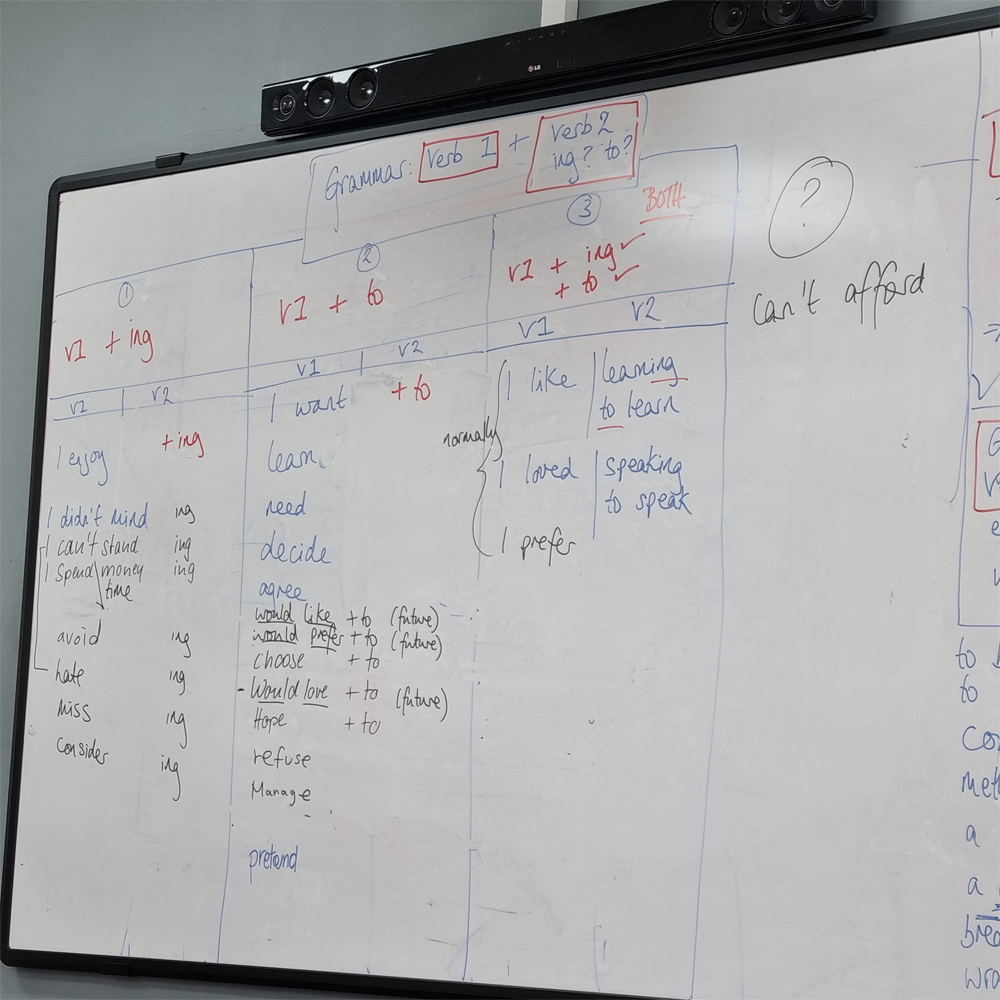 LG
Grammar: verb 1 + verb 2
ing? to?
①
v1 + ing
v1 v2
I enjoy +ing
I didn't mind ing
I can't stand ing
I spend money ing
time
avoid ing
hate ing
miss ing
consider ing
②
v1 + to
v1 v2
I want + to
learn
need
decide
agree
would like + to (future)
would prefer + to (future)
choose + to
- Would love + to (future)
Hope + to
refuse
Manage
pretend
③ BOTH
v1 + ing ✓
+ to ✓
v1 v2
normally
I like learning
to learn
I loved speaking
to speak
I prefer
?
can't afford
to
to
a
a